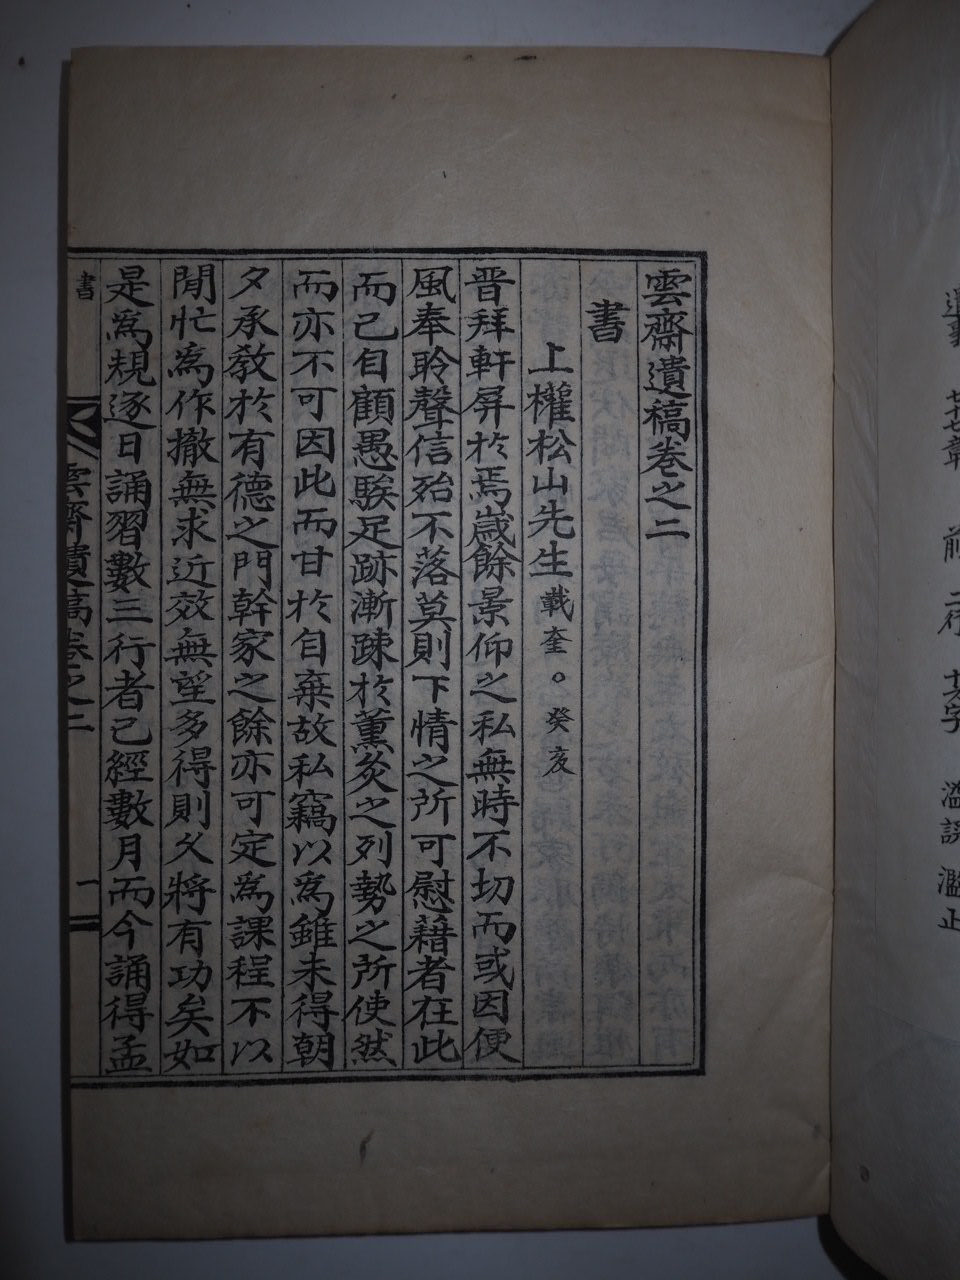 雲齋遺稿卷之二
書
上權松山先生 載奎。癸亥
晋拜軒屛於焉歲餘景仰之私無時不切而或因便
風奉聆聲信殆不落莫則下情之所可慰藉者在此
而已自顧愚騃足跡漸踈於薰炙之列勢之所使然
而亦不可因此而甘於自棄故私竊以爲雖未得朝
夕承敎於有德之門幹家之餘亦可定爲課程不以
閒忙爲作撤無求近效無望多得則久將有功矣如
是爲規逐日誦習數三行者已經數月而今誦得孟
書
雲齋遺稿卷之二
一